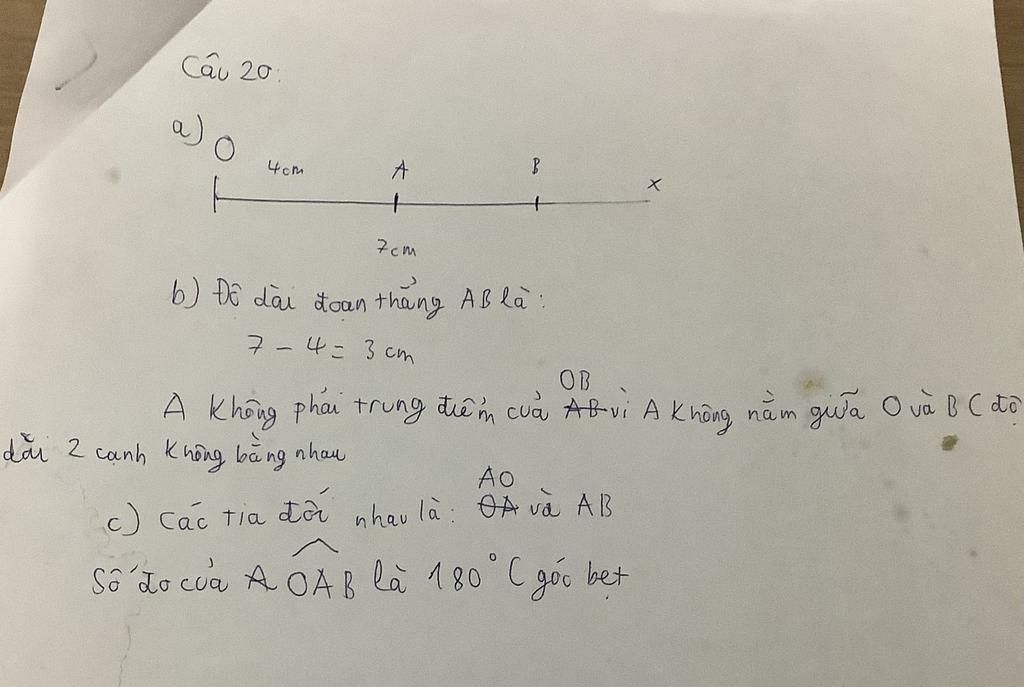 Câu 20:
a) O 4cm A B x
7cm
b) Độ dài đoạn thẳng AB là:
7 - 4 = 3 cm
A không phải trung điểm của AB OB vì A không nằm giữa O và B ( độ
dài 2 cạnh không bằng nhau
c) các tia đối nhau là: OA AO và AB
Số đo của A OAB là 180° ( góc bẹt